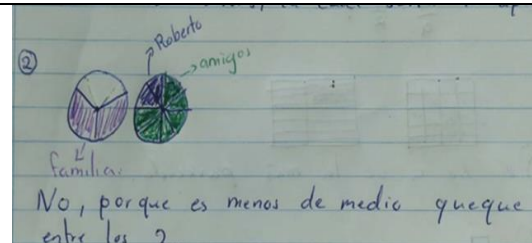 ②
Roberto
amigos
familia
No, porque es menos de medio queque
entre los 2